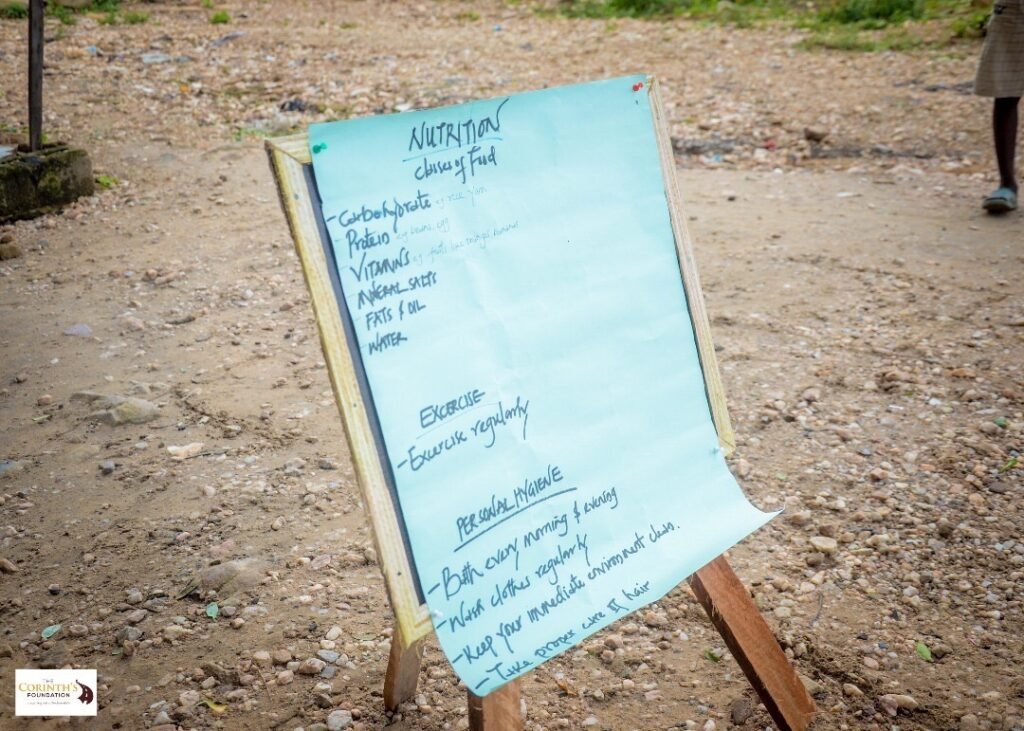 NUTRITION
Classes of Food
- Carbohydrate eg rice Yam
- Protein eg beans, egg
VITAMINS eg fruits like mango banana
MINERAL SALTS
- FATS & OIL
- WATER
EXCERCISE
- Excercise regularly
PERSONAL HYGIENE
- Bath every morning & evening
- Wash clothes regularly
- Keep your immediate environment clean.
- Take proper care of hair
THE
CORINTH'S
FOUNDATION